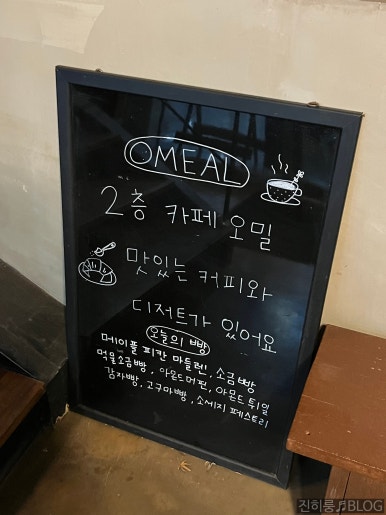 OMEAL
2층 카페 오밀
맛있는 커피와
디저트가 있어요
오늘의 빵
메이플 피칸 마들렌, 소금빵
먹물소금빵, 아몬드머핀, 아몬드 튀일
감자빵, 고구마빵, 소세지 페스트리
진히룽♬BLOG